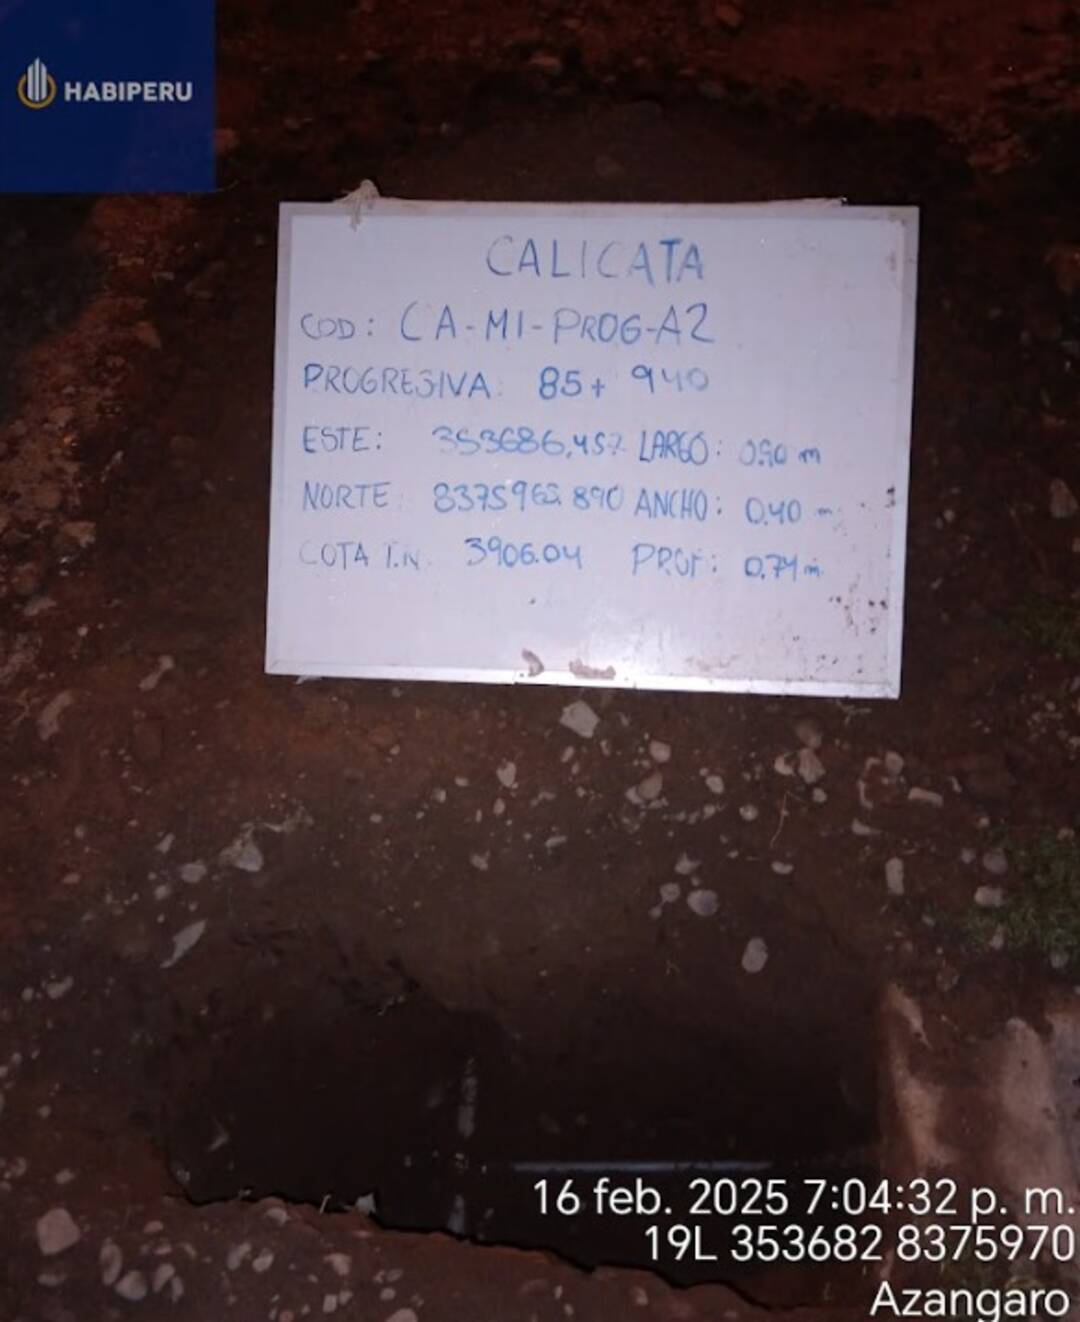 HABIPERU
CALICATA
COD: CA-MI-PROG-A2
PROGRESIVA: 85+ 940
ESTE: 353686,457 LARGO: 0.90 m
NORTE: ANCHO: 0.40 m
COTA T.N. 3906.04 PROF: 0.74 m.
16 feb. 2025 7:04:32 p. m.
19L 353682 8375970
Azangaro